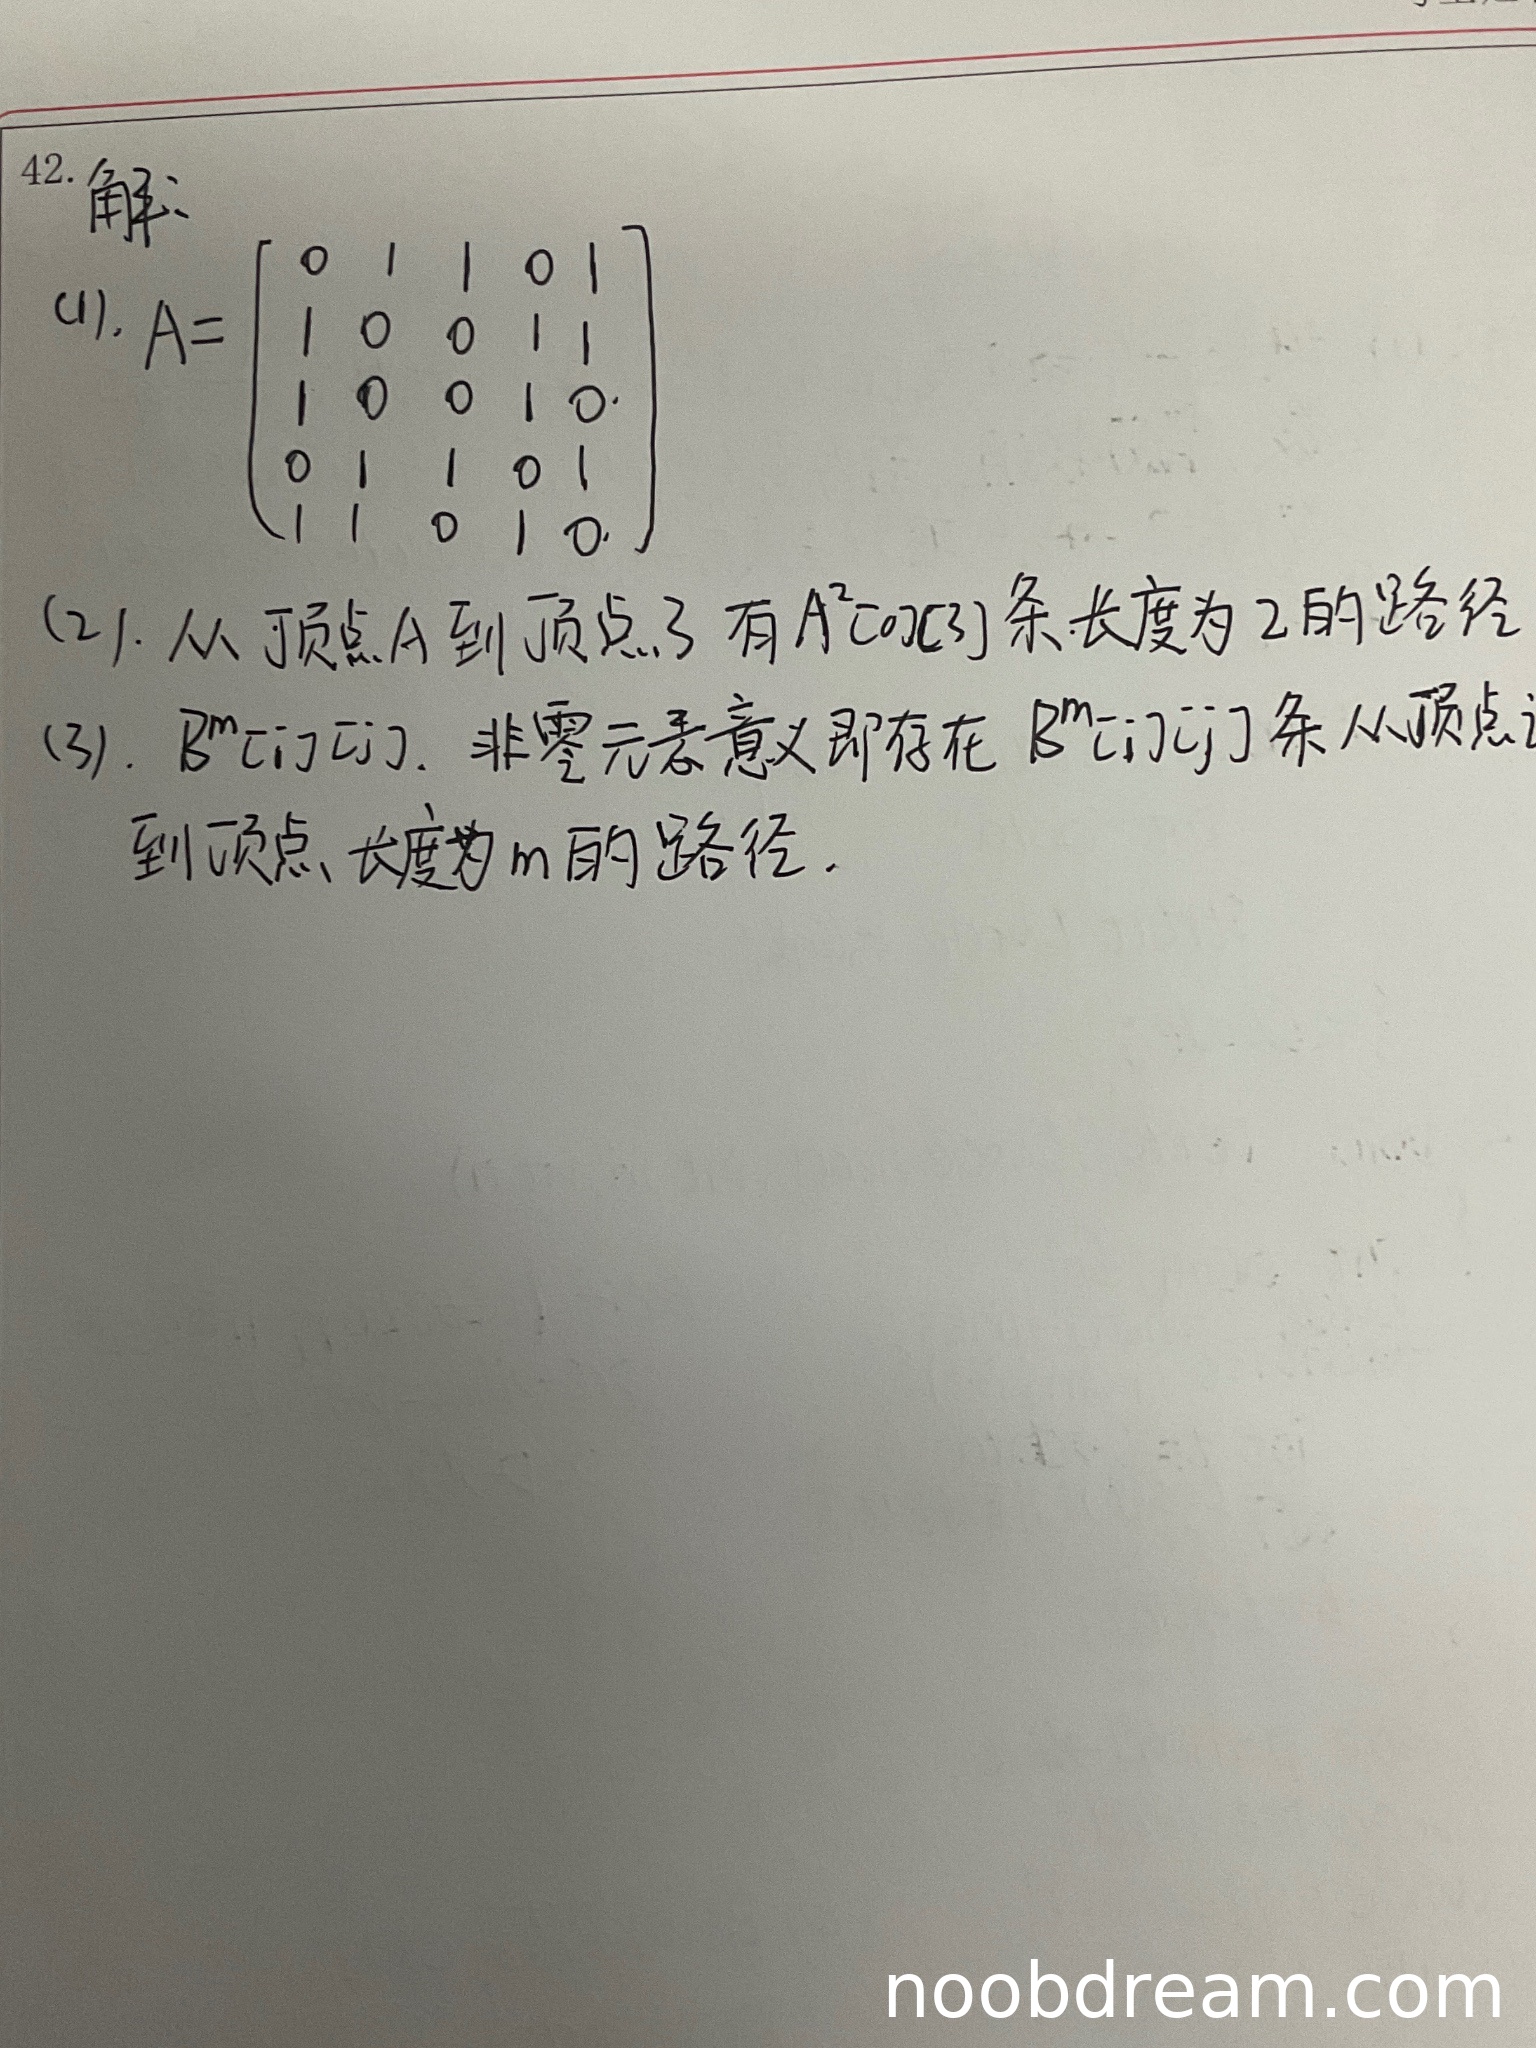 42. 解:
(1). A=
0 1 1 0 1
1 0 0 1 1
1 0 0 1 0.
0 1 1 0 1
1 1 0 1 0.
(2). 从顶点A到顶点3 有A²[0][3]条长度为2的路径
(3). Bᵐ[i][j]. 非零元素意义即存在 Bᵐ[i][j]条从顶点i
到顶点、长度为m的路径.
noobdream.com